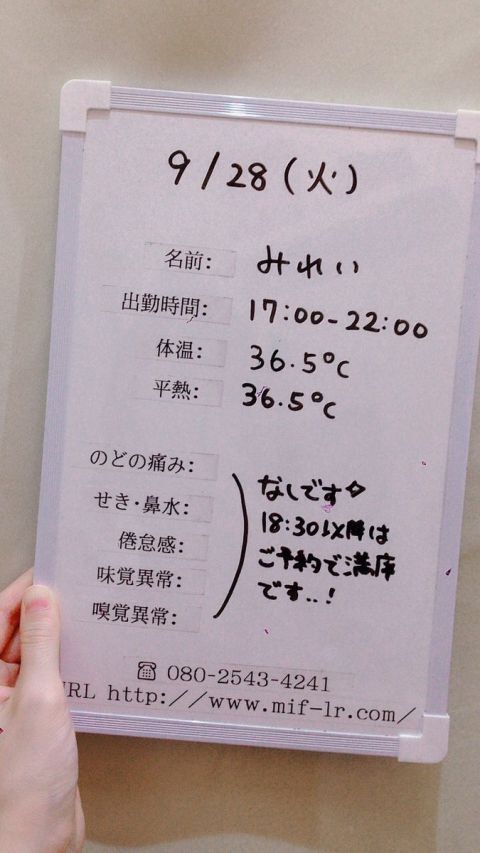 9/28(火)
名前: みれい
出勤時間: 17:00-22:00
体温: 36.5℃
平熱: 36.5℃
のどの痛み:
せき・鼻水:
倦怠感:
味覚異常:
嗅覚異常:
なしです
18:30以降は
ご予約で満席
です..!
☎ 080-2543-4241
URL http://www.mif-lr.com/